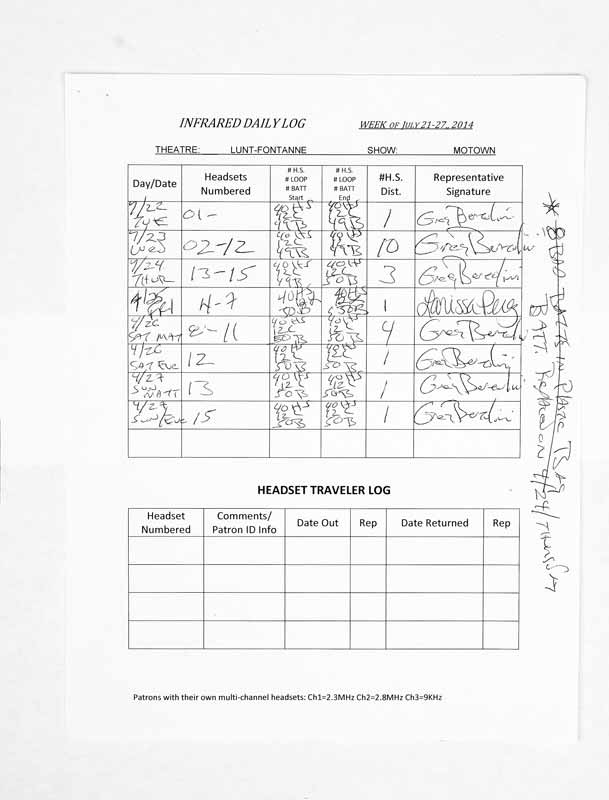 INFRARED DAILY LOG WEEK OF JULY 21-27, 2014
THEATRE: LUNT-FONTANNE SHOW: MOTOWN
Day/Date Headsets Numbered # H.S. # LOOP # BATT Start # H.S. # LOOP # BATT End #H.S. Dist. Representative Signature
7/22 TUE 01- 40HS 12L 49B 40HS 12L 49B 1 Greg Beredini
7/23 WED 02-12 40HS 12L 49B 40HS 12L 49B 10 Greg Beredini
7/24 THUR 13-15 40HS 12L 49B 40HS 12L 50B 3 Greg Beredini
4-7 40HS 50B 1 Larissa Perez
4/26 SAT MAT 8-11 40HS 12L 50B 40HS 12L 50B 4 Greg Beredini
4/26 SAT EVE 12 40HS 12L 50B 40HS 12L 50B 1 Greg Beredini
4/27 SUN MATT 13 40HS 12L 50B 40HS 12L 50B 1 Greg Beredini
4/27 SUN/EVE 15 40HS 12L 50B 40HS 12L 50B 1 Greg Beredini
* 8 BAD BATTS IN PLASTIC
BATT. ON 4/24/THURSDAY
HEADSET TRAVELER LOG
Headset Numbered Comments/ Patron ID Info Date Out Rep Date Returned Rep
Patrons with their own multi-channel headsets: Ch1=2.3MHz Ch2=2.8MHz Ch3=9KHz